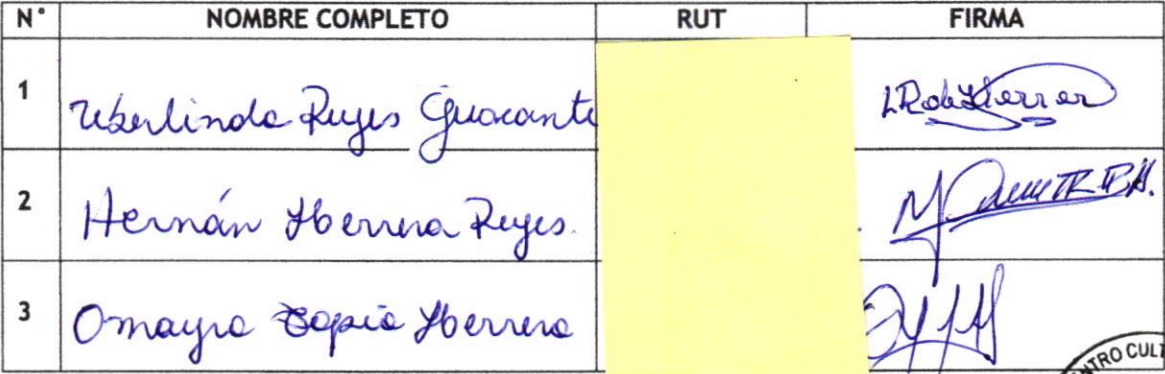 N° NOMBRE COMPLETO RUT FIRMA
1 Uberlinda Reyes Guacante
2 Hernán Herrera Reyes.
3 Omayra Tapia Herrera
NTRO CULT